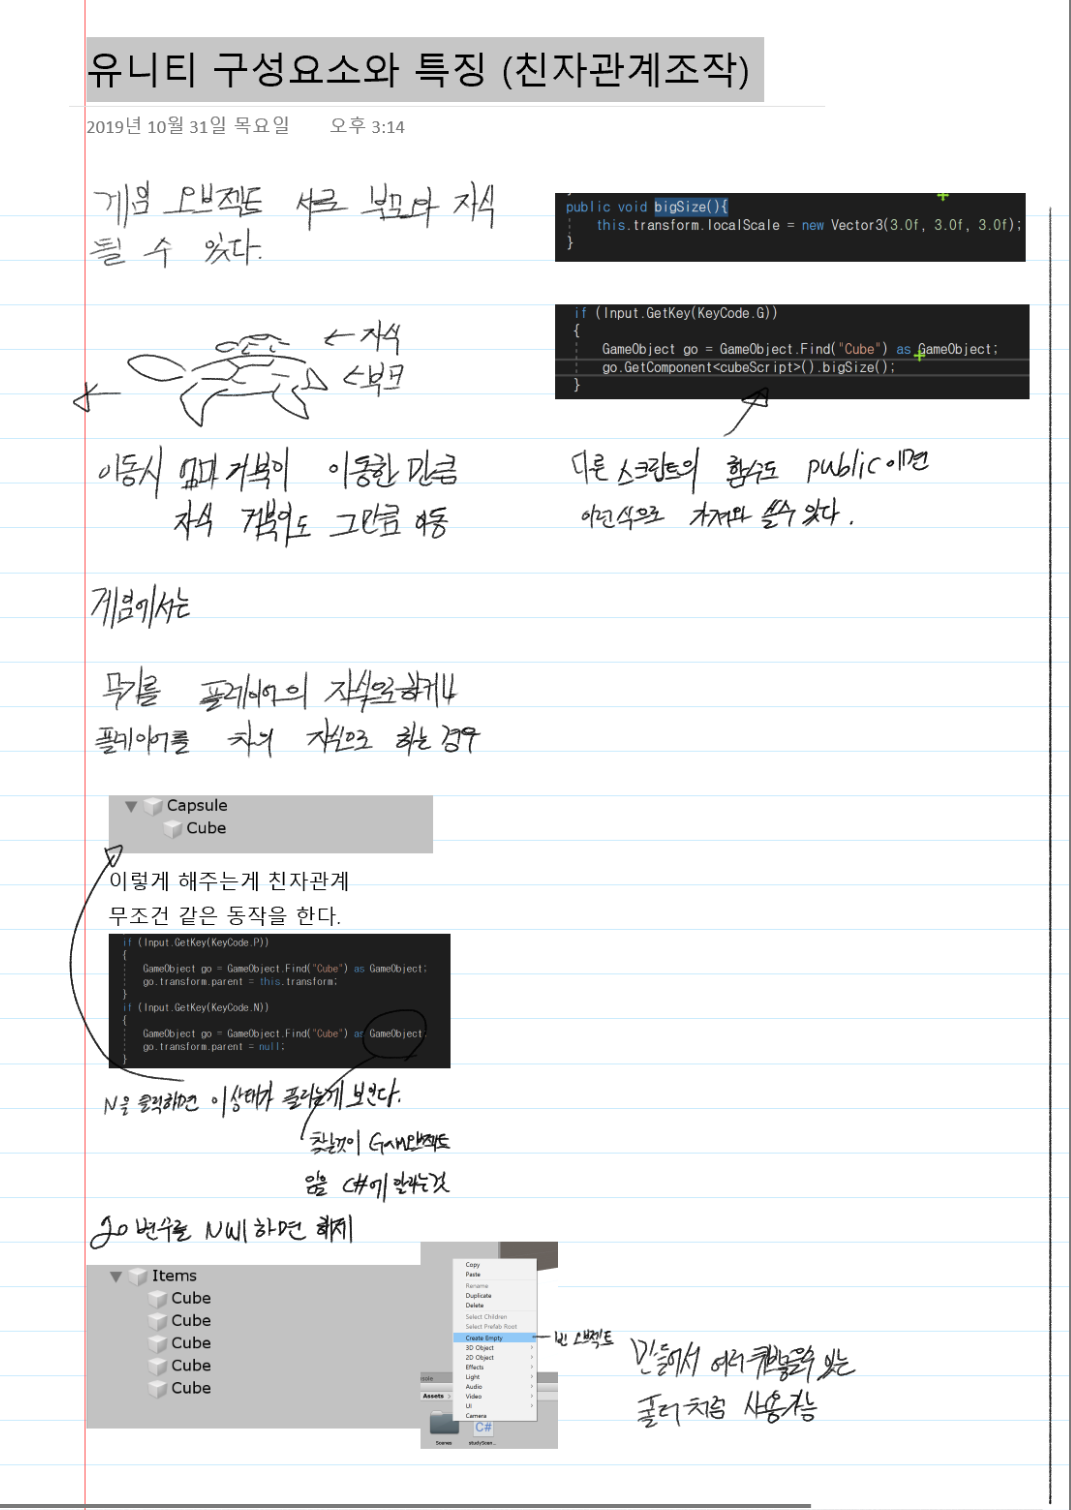 유니티 구성요소와 특징 (친자관계조작)
2019년 10월 31일 목요일 오후 3:14
게임 오브젝트 서로 부모와 자식
될 수 있다.
public void bigSize(){
this.transform.localScale = new Vector3(3.0f, 3.0f, 3.0f);
}
if (Input.GetKey(KeyCode.G))
{
GameObject go = GameObject.Find("Cube") as GameObject;
go.GetComponent<cubeScript>().bigSize();
}
←자식
←부모
이동시 엄마 거북이 이동한 만큼
자식 거북이도 그만큼 이동
다른 스크립트의 함수도 public이면
이런식으로 가져와 쓸수 있다.
게임에서는
무기를 플레이어의 자식으로하거나
플레이어를 차의 자식으로 하는 경우
Capsule
Cube
이렇게 해주는게 친자관계
무조건 같은 동작을 한다.
if (Input.GetKey(KeyCode.P))
{
GameObject go = GameObject.Find("Cube") as GameObject;
go.transform.parent = this.transform;
}
if (Input.GetKey(KeyCode.N))
{
GameObject go = GameObject.Find("Cube") as GameObject;
go.transform.parent = null;
}
N을 클릭하면 이상태가 풀리는게 보인다.
찾는것이 Gam오브젝트
임을 C#에 알리는것
go 변수를 Null 하면 해제
Items
Cube
Cube
Cube
Cube
Cube
Copy
Paste
Rename
Duplicate
Delete
Select Children
Select Prefab Root
Create Empty
3D Object
2D Object
Effects
Light
Audio
Video
UI
Camera
Assets
C#
Scenes
studyScen...
빈 오브젝트
만들어서 여러 큐브넣을수 있는
폴더처럼 사용가능